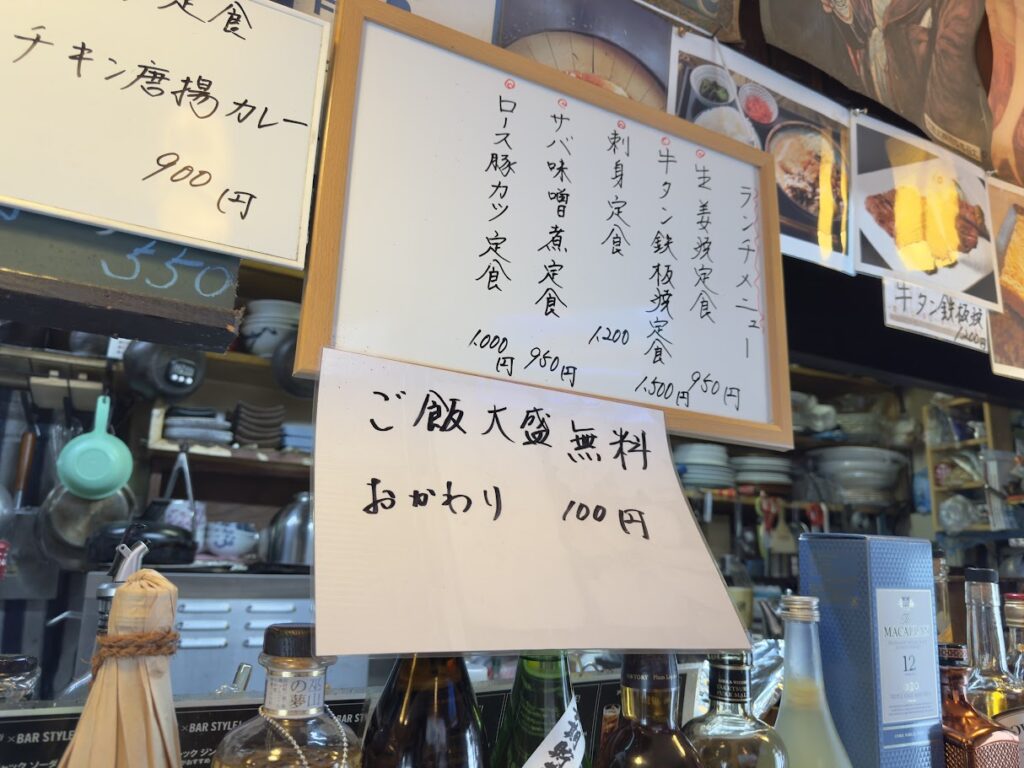 定食
チキン唐揚カレー
900円
550
ランチメニュー
生姜焼定食 950円
牛タン鉄板焼定食 1,500円
刺身定食 1,200
サバ味噌煮定食 950円
ロース豚カツ定食 1,000円
ご飯大盛無料
おかわり 100円
牛タン鉄板焼
1,200円
MACALLAN
12
×BAR STYLE!
×BAR STYLE!
の夢